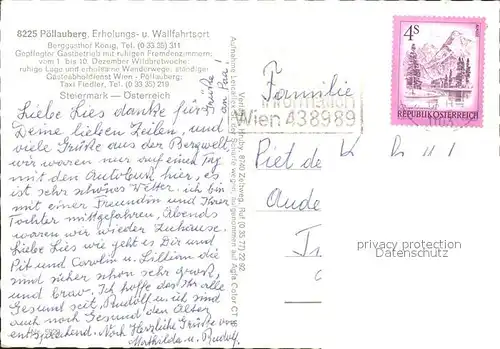 8225 Pöllauberg. Erholungs- u. Wallfahrtsort
Berggasthof König, Tel. (0 33 35) 311
Gepflegter Gastbetrieb mit ruhigen Fremdenzimmern,
vom 1. bis 10. Dezember Wildbretwoche
ruhige Lage und erholsame Wanderwege, ständiger
Gästeabholdienst Wien - Pöllauberg:
Taxi Fiedler, Tel. (0 33 35) 219
Steiermark — Österreich
Grüße
an Pari!
Liebe Lies danke für
Deine lieben Zeilen, und
viele Grüße aus der Bergwelt
wir waren nur auf einen Tag
mit den Autobus hier, es
ist sehr schönes Wetter. ich bin
mit einer Freundin und Ihrer
Tochter mitgefahren, Abends
waren wir wieder Zuhause.
Liebe Lies wie geht es Dir und
Pit und Carolin u. Lilliom die
sind sicher schon sehr groß,
und brav. Ich hoffe das Ihr alle
Gesund seit, Rudolf u. ich sind
auch noch Gesund den Alter
entsprechend. Noch Herzliche Grüße von
Mathilda u. Rudolf.
Hruby, 8740 Zeltweg, Ruf (0 35 77) 22 92
aufgenommen auf Agfa Color CT
4S
REPUBLIK ÖSTERREICH
Information
Wien 438989
Familie
Piet de
Oude
privacy protection
Datenschutz